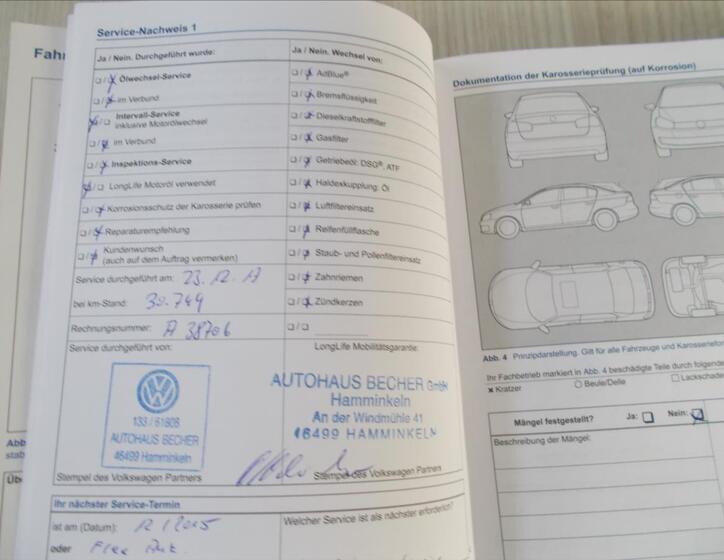 Service-Nachweis 1
Ja / Nein. Durchgeführt wurde:
Ölwechsel-Service
im Verbund
Intervall-Service
inklusive Motorölwechsel
im Verbund
Inspektions-Service
LongLife Motoröl verwendet
Korrosionsschutz der Karosserie prüfen
Reparaturempfehlung
Kundenwunsch
(auch auf dem Auftrag vermerken)
Service durchgeführt am:
bei km-Stand: 30.749
Rechnungsnummer: A 38706
Service durchgeführt von:
133 / 61806
AUTOHAUS BECHER
46499 Hamminkeln
Stempel des Volkswagen Partners
Ja / Nein. Wechsel von:
AdBlue®
Bremsflüssigkeit
Dieselkraftstofffilter
Gasfilter
Getriebeöl: DSG®, ATF
Haldexkupplung: Öl
Luftfiltereinsatz
Reifenfüllflasche
Staub- und Pollenfiltereinsatz
Zahnriemen
Zündkerzen
LongLife Mobilitätsgarantie:
AUTOHAUS BECHER GmbH
Hamminkeln
An der Windmühle 41
46499 HAMMINKELN
Stempel des Volkswagen Partners
Ihr nächster Service-Termin
ist am (Datum):
oder
Welcher Service ist als nächster erforderlich?
Dokumentation der Karosserieprüfung (auf Korrosion)
Abb. 4 Prinzipdarstellung. Gilt für alle Fahrzeuge und
Ihr Fachbetrieb markiert in Abb. 4 beschädigte Teile durch
Kratzer
Beule/Delle
Mängel festgestellt? Ja: Nein:
Beschreibung der Mängel: